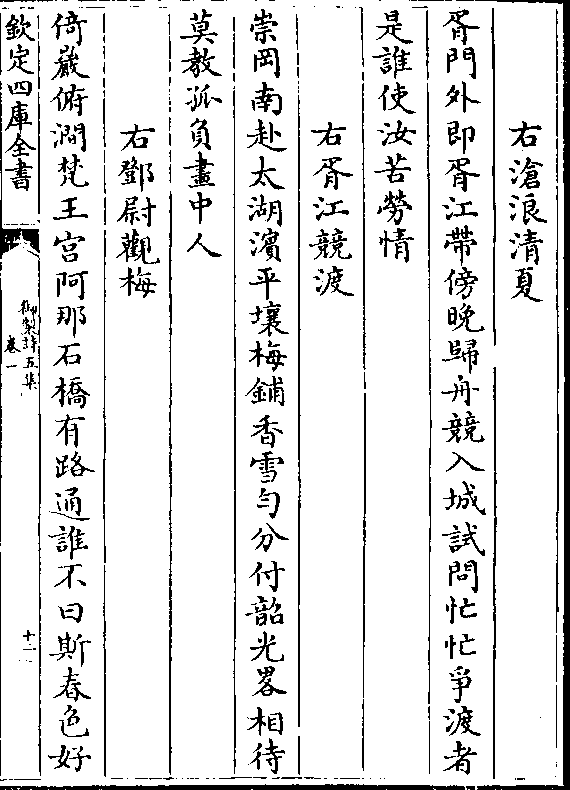 右滄浪清夏
胥門外即胥江帶傍晚歸舟競入城試問忙忙爭渡者
是誰使汝苦勞情
右胥江競渡
崇岡南赴太湖濱平壤梅鋪香雪勻分付韶光畧相待
莫教孤負畫中人
右鄧尉觀梅
倚巖俯澗梵王宫阿那石橋有路通誰不曰斯春色好
欽定四庫全書
御製詩五集
卷一
十二